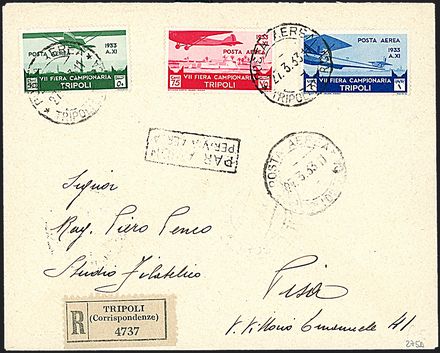 POSTA AEREA
1933
A.XI
VII FIERA CAMPIONARIA
TRIPOLI
POSTA AEREA
1933
A.XI
75
VII FIERA CAMPIONARIA
TRIPOLI
POSTA AEREA
1933
A.XI
VII FIERA CAMPIONARIA
TRIPOLI
POSTA AEREA
27.3.33
TRIPOLI
PAR AVION
PER VIA AEREA
POSTA AEREA
Signor
Rag. Piero Penco
Studio Filatelico
Pisa
V. Vittorio Emanuele 41
R
TRIPOLI
(Corrispondenze)
4737